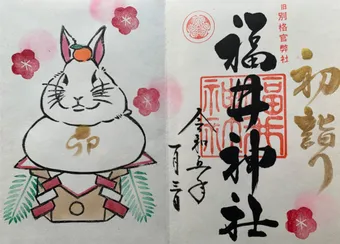 初詣り
旧別格官幣社
福井神社
福井
神社
令和五年
一月三日
卯